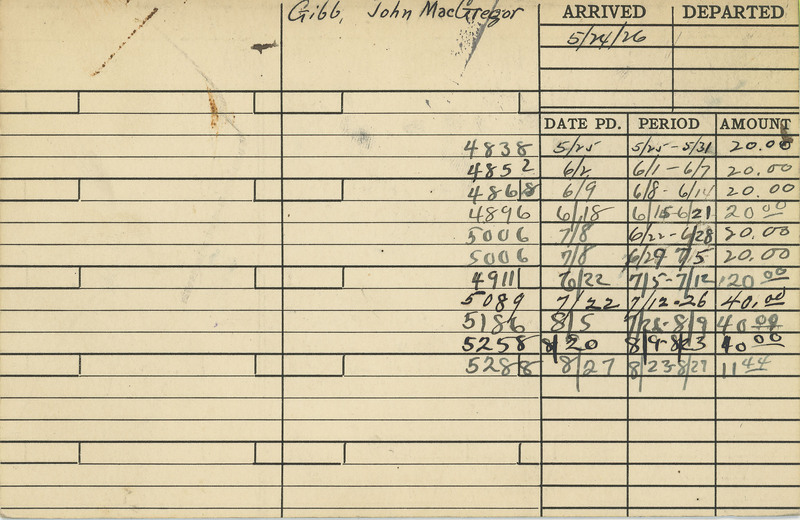 Gibb, John MacGregor ARRIVED DEPARTED
5/24/26
DATE PD. PERIOD AMOUNT
4838 5/25 5/25-5/31 20.00
4852 6/2 6/1-6/7 20.00
4868 6/9 6/8-6/14 20.00
4896 6/18 6/15-6/21 20.00
5006 7/8 6/22-6/28 20.00
5006 7/8 6/29 7/5- 20.00
4911 6/22 7/5-7/12 20.00
5089 7/22 7/12-26 40.00
5186 8/5 8/9 40.00
5258 8/20 8/9-8/23 40.00
5288 8/27 8/23-8/27 11.44